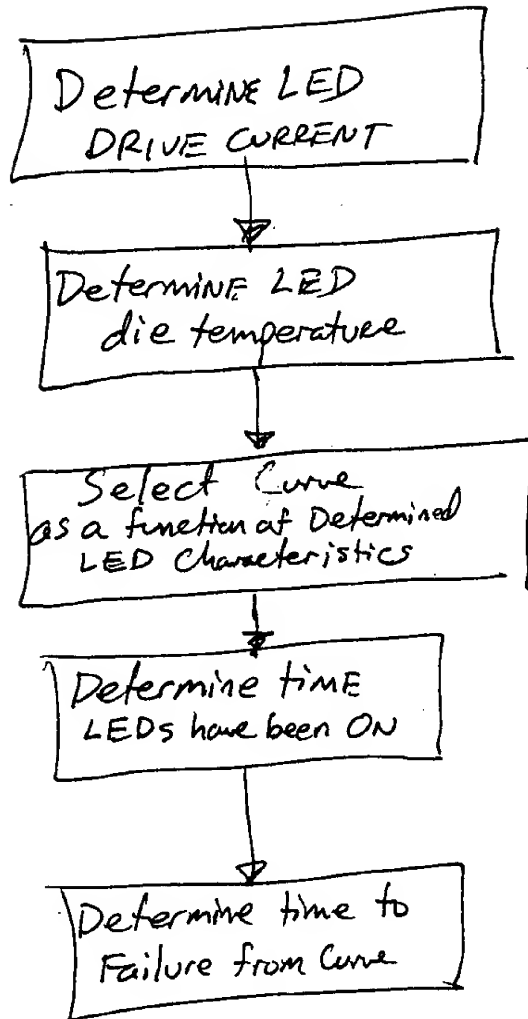 Determine LED
DRIVE CURRENT
Determine LED
die temperature
Select Curve
as a function of Determined
LED Characteristics
Determine time
LEDs have been ON
Determine time to
Failure from Curve